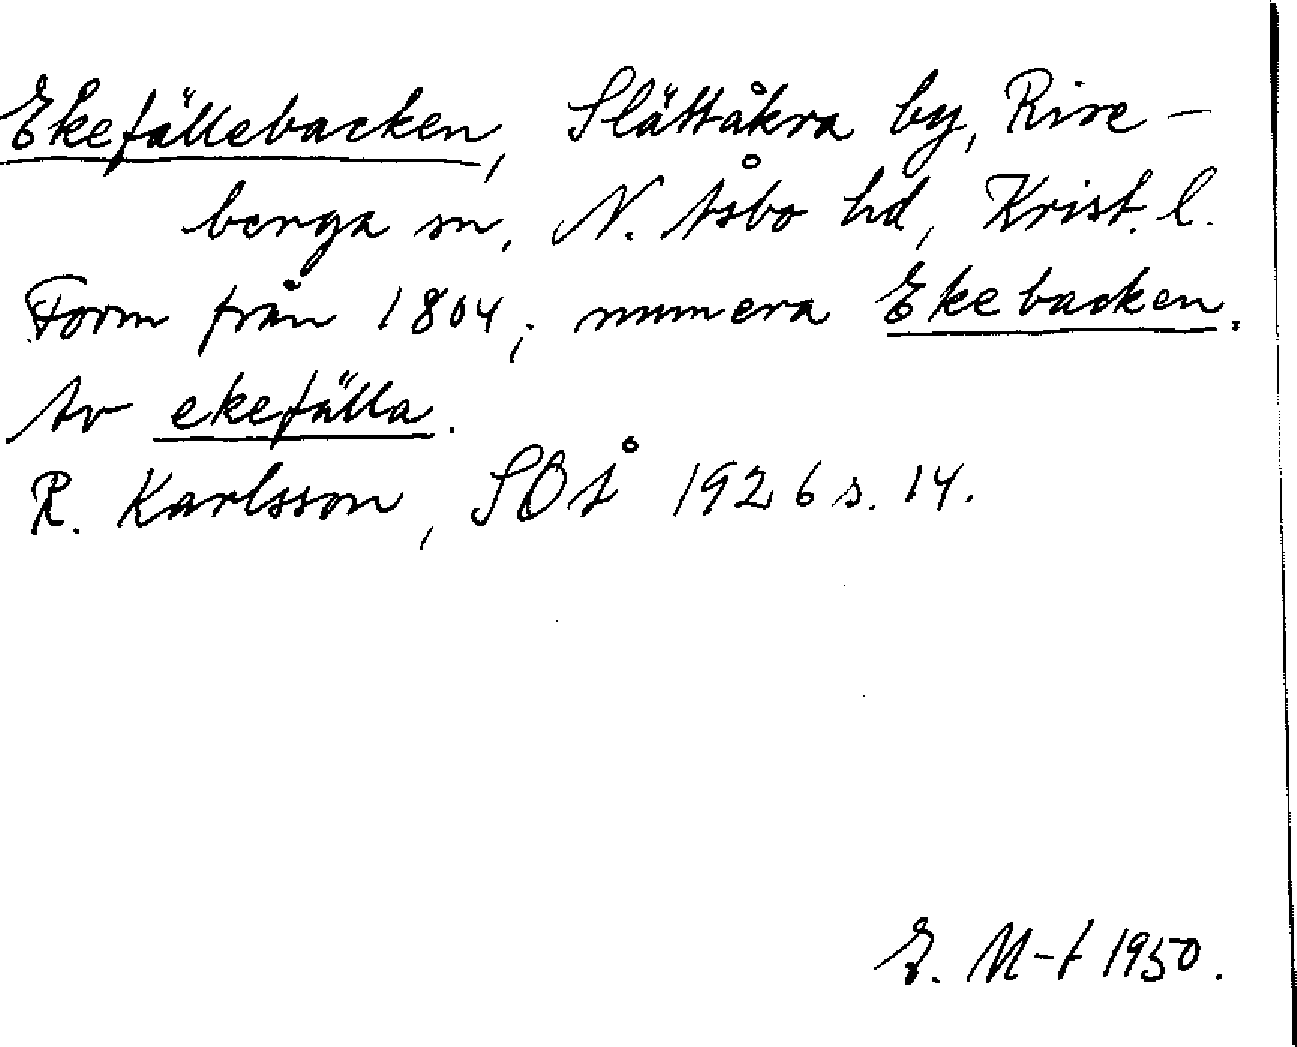 Ekefällebacken, Slättåkra by, Rise-
berga sn, N. Åsbo hd, Krist. l.
Form från 1804; numera Ekebacken.
Av ekefälla.
R. Karlsson, SOÅ 1926 s. 14.
E. M-t 1950.